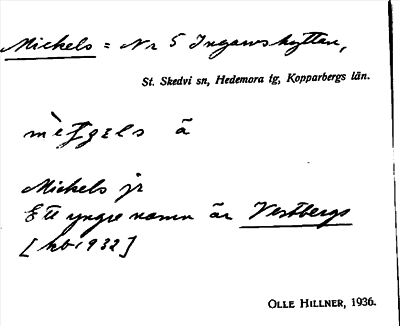 Mickels = Nr 5 Ingarvshyttan,
St. Skedvi sn, Hedemora tg, Kopparbergs län.
ä
Mickels jr
Ett yngre namn är Vestbergs
[hb. 1932]
OLLE HILLNER, 1936.